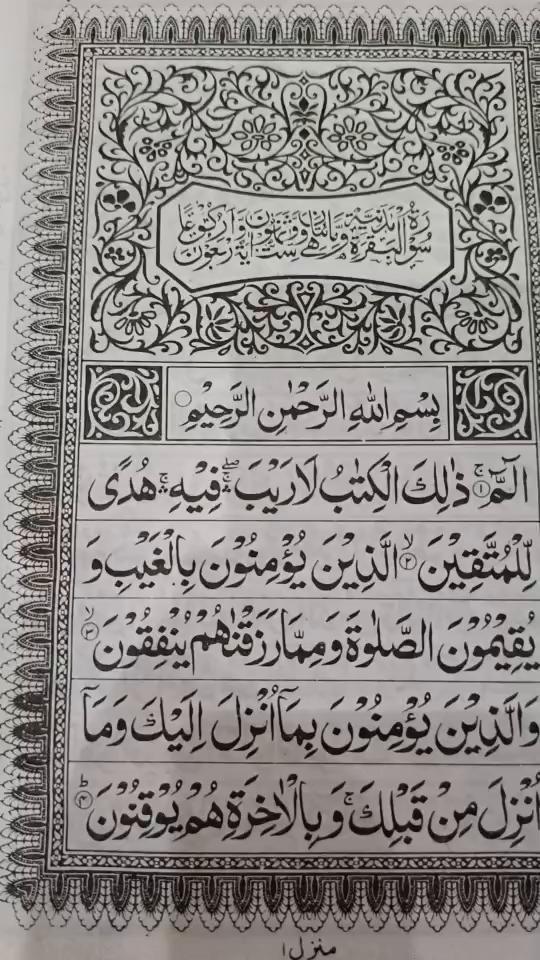 سورة البقرة مدنية وهي مائتان وست وثمانون آية وأربعون ركوعا
بِسْمِ اللهِ الرَّحْمٰنِ الرَّحِيْمِ
الٓمّٓ ۚ﴿۱﴾ ذٰلِكَ الْكِتٰبُ لَا رَيْبَ ۛۖۚ فِيْهِ ۛۚ هُدًى
لِّلْمُتَّقِيْنَ ﴿۲﴾ۙ الَّذِيْنَ يُؤْمِنُوْنَ بِالْغَيْبِ وَ
يُقِيْمُوْنَ الصَّلٰوةَ وَمِمَّا رَزَقْنٰهُمْ يُنْفِقُوْنَ ﴿۳﴾ۙ
وَالَّذِيْنَ يُؤْمِنُوْنَ بِمَآ اُنْزِلَ اِلَيْكَ وَمَآ
اُنْزِلَ مِنْ قَبْلِكَ ۚ وَبِالْاٰخِرَةِ هُمْ يُوْقِنُوْنَ ﴿۴﴾ؕ
منزل ۱